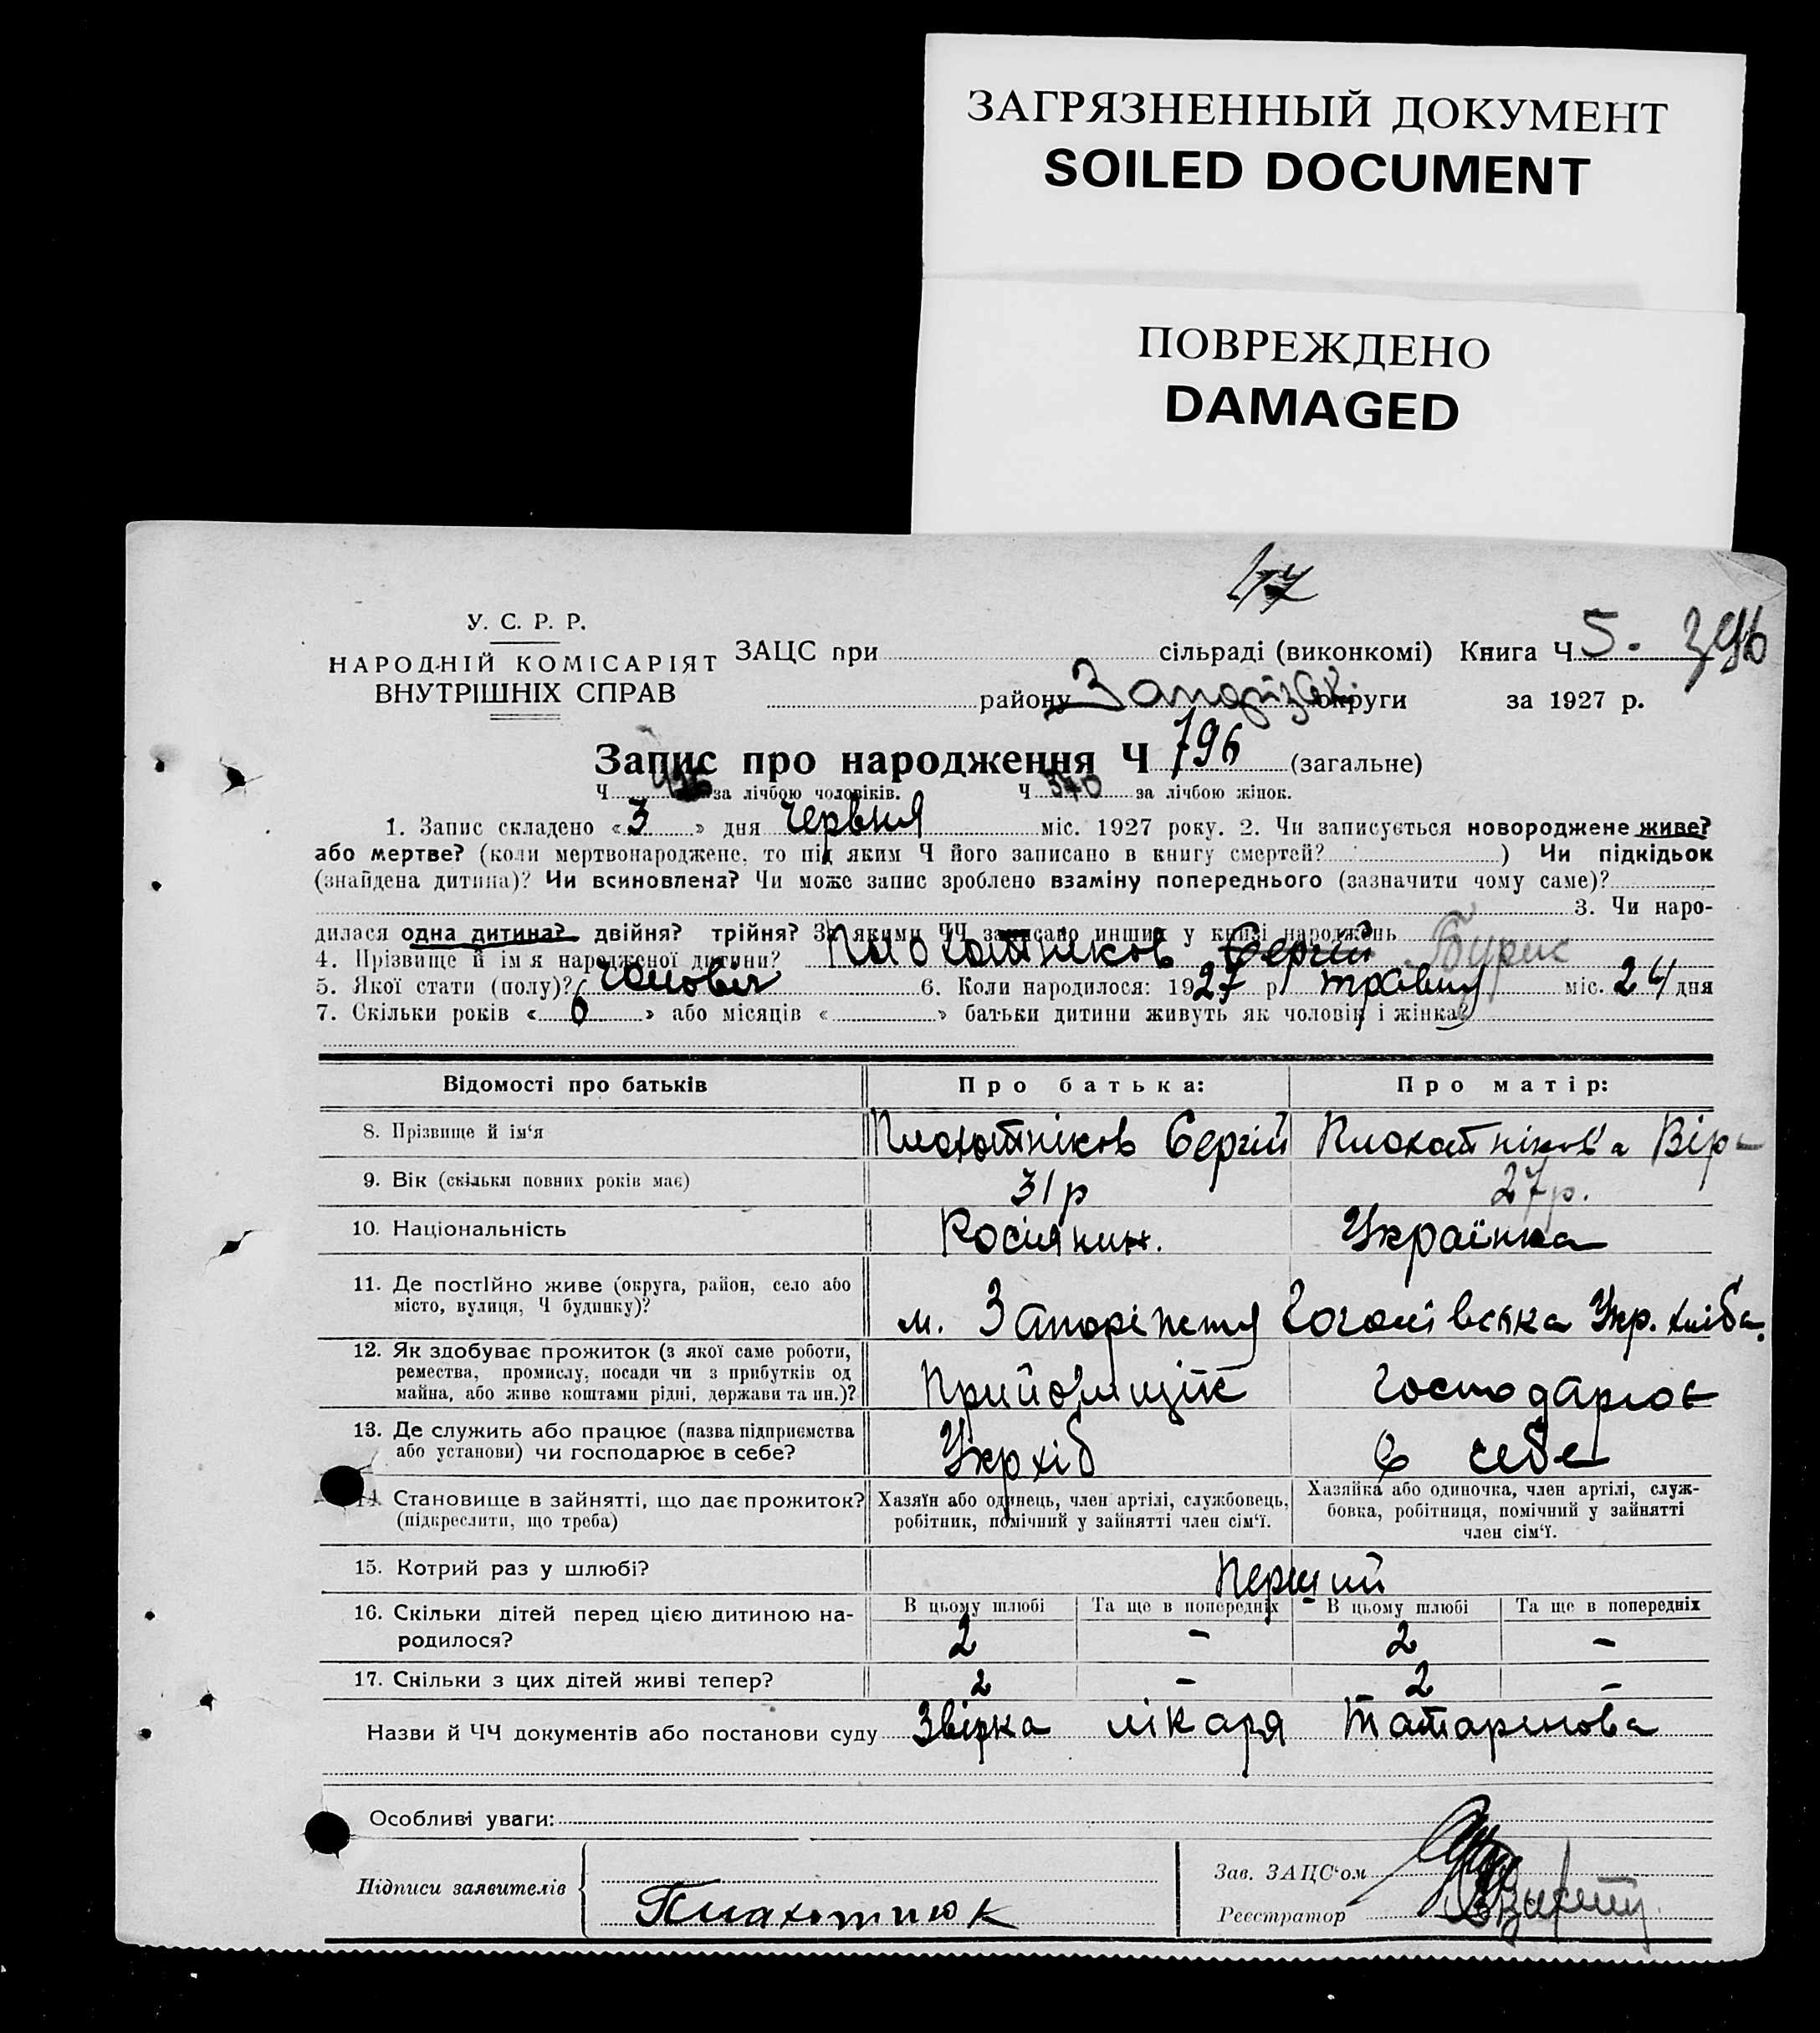 ЗАГРЯЗНЕННЫЙ ДОКУМЕНТ
SOILED DOCUMENT
ПОВРЕЖДЕНО
DAMAGED
47
У. С. Р. Р.
НАРОДНІЙ КОМІСАРІЯТ
ВНУТРІШНІХ СПРАВ
ЗАЦС при сільраді (виконкомі) Книга Ч 5. 396
району Запорізьк. округи за 1927 р.
Запис про народження Ч 796 (загальне)
Ч за лічбою чоловіків. Ч 370 за лічбою жінок.
1. Запис складено « 3 » дня червня міс. 1927 року. 2. Чи записується новороджене живе?
або мертве? (коли мертвонароджене, то під яким Ч його записано в книгу смертей? ) Чи підкідьок
(знайдена дитина)? Чи всиновлена? Чи може запис зроблено взаміну попереднього (зазначити чому саме)?
3. Чи наро-
дилася одна дитина? двійня? трійня? За якими ЧЧ записано инших у книзі народжень
4. Прізвище й ім'я народженої дитини? Плохотніков Сергій Борис
5. Якої стати (полу)? чоловіч 6. Коли народилося: 1927 р. травня міс. 24 дня
7. Скільки років « 6 » або місяців « » батьки дитини живуть як чоловік і жінка?
Відомості про батьків Про батька: Про матір:
8. Прізвище й ім'я Плохотніков Сергій Плохотнікова Віра
9. Вік (скільки повних років має) 31 р 27 р.
10. Національність Росіянин. Українка
11. Де постійно живе (округа, район, село або
місто, вулиця, Ч будинку)? м. Запоріжжя Гоголівська Укр. хліба.
12. Як здобуває прожиток (з якої саме роботи,
ремества, промислу, посади чи з прибутків од
майна, або живе коштами рідні, держави та ин.)? Прийомщік господарює
13. Де служить або працює (назва підприємства
або установи) чи господарює в себе? Укрхліб в себе
14. Становище в зайнятті, що дає прожиток?
(підкреслити, що треба)
Хазяїн або одинець, член артілі, службовець,
робітник, помічний у зайнятті член сім'ї.
Хазяйка або одиночка, член артілі, служ-
бовка, робітниця, помічний у зайнятті
член сім'ї.
15. Котрий раз у шлюбі? Перший
16. Скільки дітей перед цією дитиною на-
родилося?
В цьому шлюбі Та ще в попередніх В цьому шлюбі Та ще в попередніх
2 - 2 -
17. Скільки з цих дітей живі тепер? 2 - 2 -
Назви й ЧЧ документів або постанови суду Звірка лікаря Татаринова
Особливі уваги:
Підписи заявителів
Плахотнюк
Зав. ЗАЦС'ом
Реєстратор